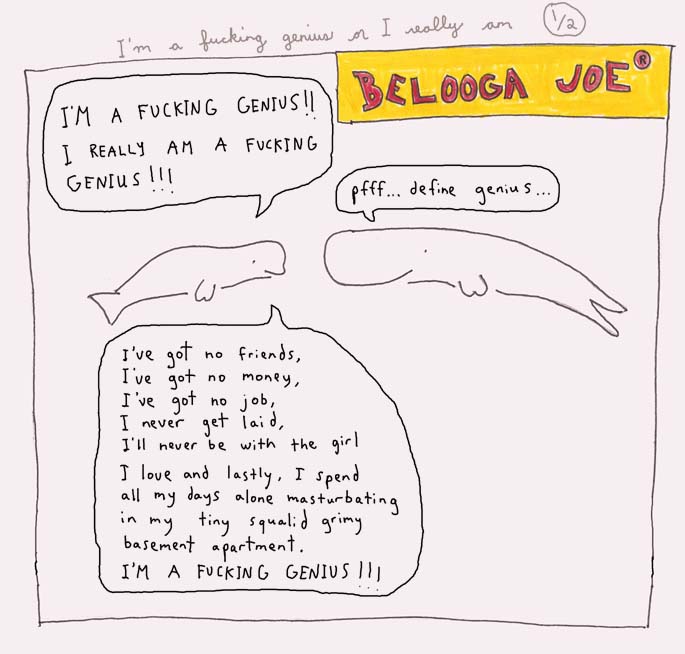 I'm a fucking genius or I really am
1/2
BELOOGA JOE®
I'M A FUCKING GENIUS!!
I REALLY AM A FUCKING
GENIUS!!!
pfff... define genius...
I've got no friends,
I've got no money,
I've got no job,
I never get laid,
I'll never be with the girl
I love and lastly, I spend
all my days alone masturbating
in my tiny squalid grimy
basement apartment.
I'M A FUCKING GENIUS!!!